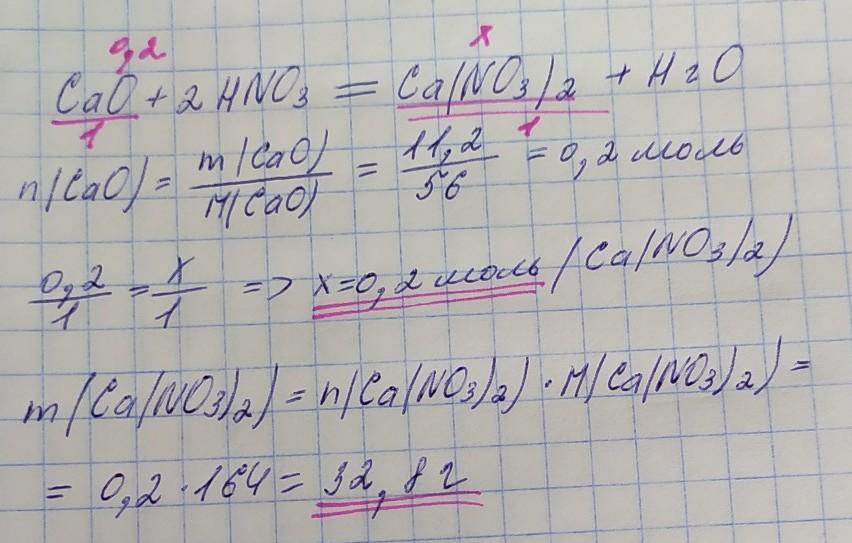 0,2 x
CaO + 2HNO3 = Ca(NO3)2 + H2O
1 1
n(CaO) = m(CaO) / M(CaO) = 11,2 / 56 = 0,2 моль
0,2 / 1 = x / 1 => x=0,2 моль (Ca(NO3)2)
m(Ca(NO3)2) = n(Ca(NO3)2) · M(Ca(NO3)2) =
= 0,2 · 164 = 32,8 г